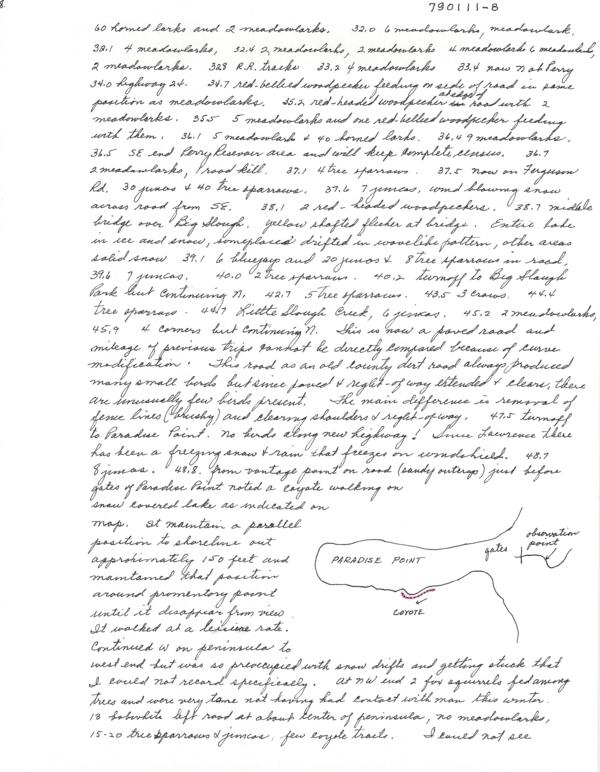 790111-8
60 horned larks and 2 meadowlarks. 32.0 6 meadowlarks, meadowlark.
32.1 4 meadowlarks, 32.4 2 meadowlarks, 2 meadowlarks 4 meadowlarks 6 meadowlark,
2 meadowlarks. 32.8 R.R. tracks 33.2 4 meadowlarks 33.4 now N at Perry
34.0 highway 24. 34.7 red-bellied woodpecker feeding N side of road in same
position as meadowlarks. 35.2 red-headed woodpecker at edge of road with 2
meadowlarks. 35.5 5 meadowlarks and one red-bellied woodpecker feeding
with them. 36.1 5 meadowlark & 40 horned larks. 36.4 9 meadowlarks.
36.5 SE end Perry Resevoir area and will keep complete census. 36.7
2 meadowlarks, 1 road kill. 37.1 4 tree sparrows. 37.5 now on Ferguson
Rd. 30 juncos & 40 tree sparrows. 37.6 7 juncos, wind blowing snow
across road from SE. 38.1 2 red-headed woodpeckers. 38.7 middle
bridge over Big Slough. yellow shafted flicker at bridge. Entire lake
in ice and snow, someplaces drifted in wavelike pattern, other areas
solid snow 39.1 6 bluejays and 20 juncos & 8 tree sparrows in road.
39.6 7 juncos. 40.0 2 tree sparrows. 40.2 turnoff to Big Slough
Park but continuing N. 42.7 5 tree sparrows. 43.5 3 crows. 44.4
tree sparrow. 44.7 Little Slough Creek, 6 juncos. 45.2 2 meadowlarks,
45.9 4 corners but continuing N. This is now a paved road and
mileage of previous trips cannot be directly compared because of curve
modification. This road as an old county dirt road always produced
many small birds but since paved & right-of-way extended & clears, there
are unusually few birds present. The main difference is removal of
fence lines (brushy) and clearing shoulders & right-of-way. 47.5 turnoff
to Paradise Point. No birds along new highway! Since Lawrence there
has been a freezing snow & rain that freezes on windshield. 48.7
8 juncos. 48.8 from vantage point on road (sandy outcrop) just before
gates of Paradise Point noted a coyote walking on
snow covered lake as indicated on
map. It maintain a parallel
position to shoreline out
approximately 150 feet and
maintained that position
around promentory point
until it disappear from view.
It walked at a leisure rate.
Continued W on peninsula to
west end but was so preoccupied with snow drifts and getting stuck that
I could not record specifically. At NW end 2 fox squirrels fed among
trees and were very tame not having had contact with man this winter.
13 bobwhite left road at about center of peninsula, no meadowlarks,
15-20 tree sparrows & juncos, few coyote trails. I could not see
PARADISE POINT
gates
observation
point
COYOTE